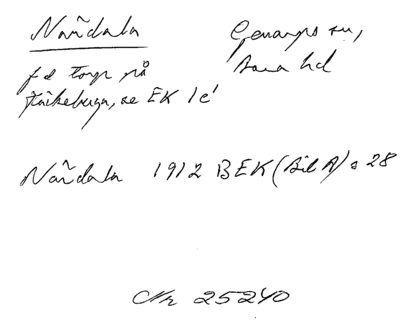 Nañdala
Genarps sn,
Bara hd
fd torp på
Häckeberga, se EK 1c'
Nañdala 1912 BEK (Bil A) s 28
Nr 25240